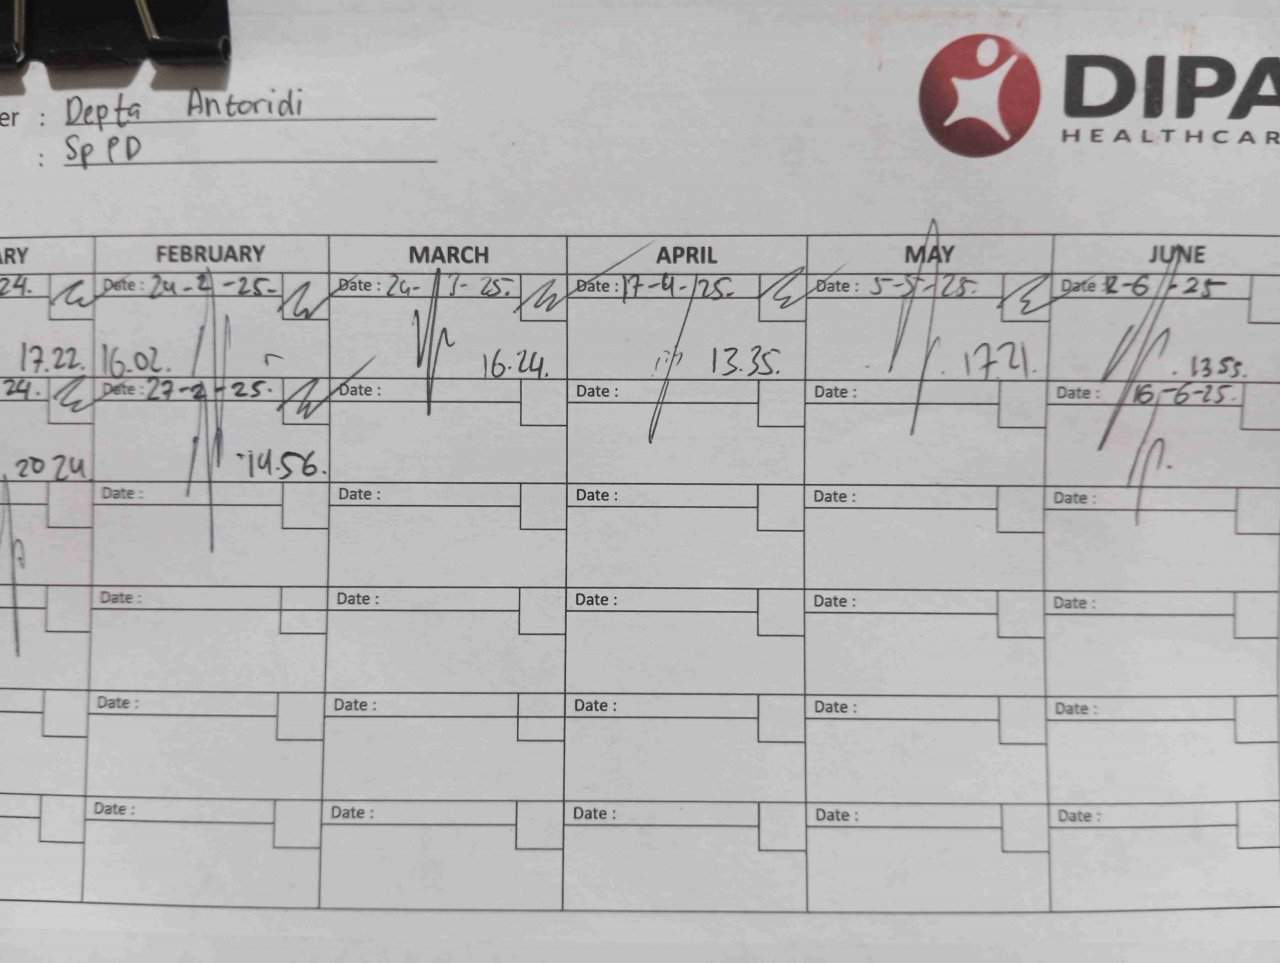 er : Depta Antoridi
: Sp PD
DIPA
HEALTHCAR
ARY FEBRUARY MARCH APRIL MAY JUNE
24. Date : 24-2-25. Date : 24-3-25. Date : 17-4-25. Date : 5-5-25. Date 2-6-25
17.22. 16.02. 16.24. 13.35. 17.21. 13.55.
24. Date : 27-2-25. Date : Date : Date : Date : 16-6-25.
20 24 14.56.
Date : Date : Date : Date : Date :
Date : Date : Date : Date : Date :
Date : Date : Date : Date : Date :
Date : Date : Date : Date : Date :